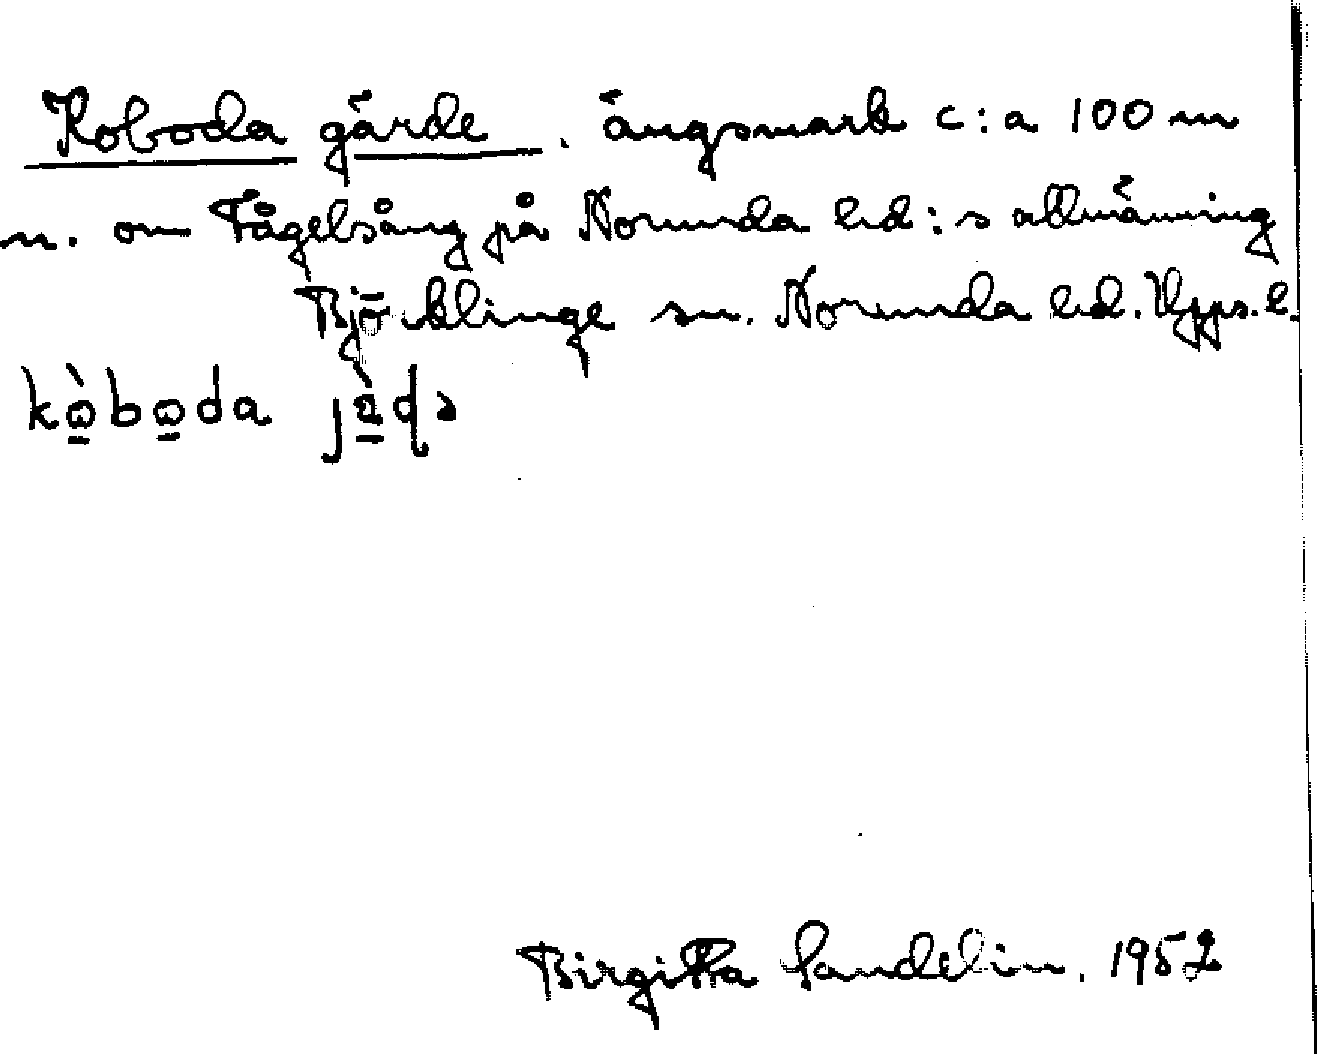 Koboda gärde. ängsmark c:a 100 m
n. om Fågelsång på Norunda hd:s allmänning
Björklinge sn. Norunda hd. Upps. l.
kò̱bo̱da jä̱̀ḍə
Birgitta Sandelin. 1952